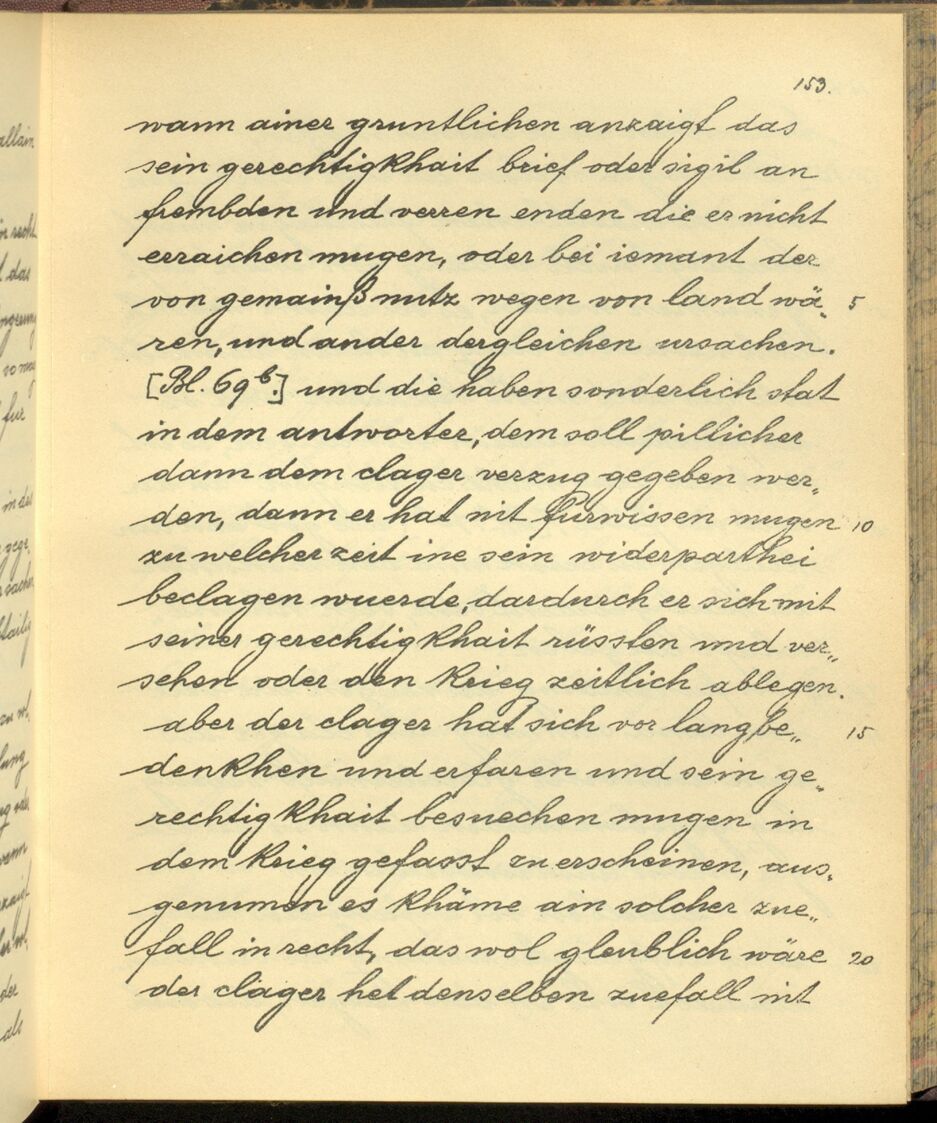 153.
wann ainer gruntlichen anzaigt das
sein gerechtigkhait brief oder sigil an
frembden und verren enden die er nicht
erraichen mugen, oder bei iemant der
von gemainß nutz wegen von land wä„ 5
ren, und ander dergleichen ursachen.
[Bl. 69b.] und die haben sonderlich stat
in dem antworter, dem soll pillicher
dann dem clager verzug gegeben wer„
den, dann er hat nit fürwissen mugen 10
zu welcher zeit ine sein widerparthei
beclagen wuerde, dardurch er sich mit
seiner gerechtigkhait rüssten und ver„
sehen oder den krieg zeitlich ablegen.
aber der clager hat sich vor lang be„ 15
denkhen und erfaren und sein ge„
rechtigkhait besuechen mugen in
dem krieg gefasst zu erscheinen, aus„
genumen es khäme ain solcher zue„
fall in recht, das wol gleublich wäre 20
der clager het denselben zuefall nit